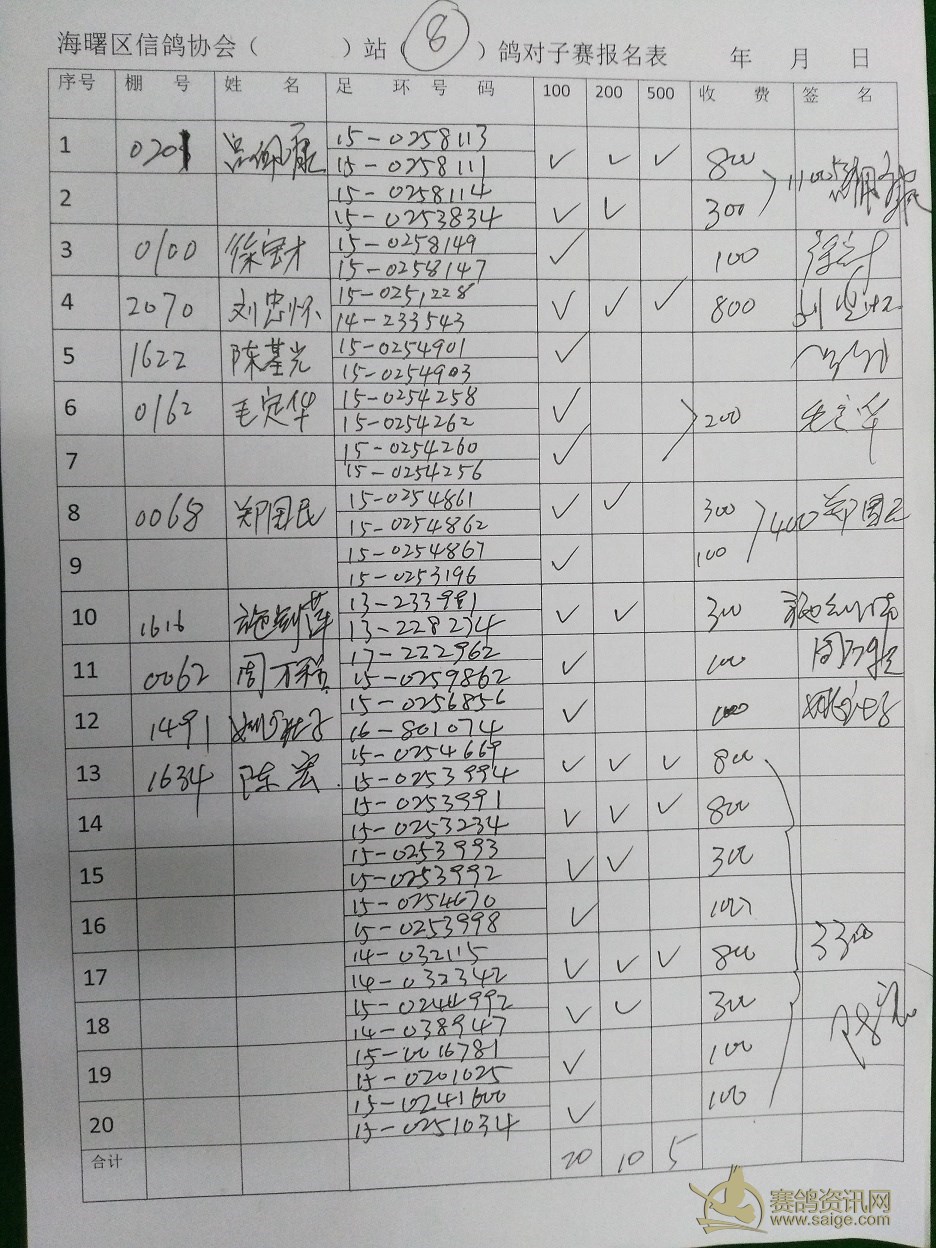 海曙区信鸽协会( )站(8)鸽对子赛报名表 年 月 日
序号 棚 号 姓 名 足 环 号 码 100 200 500 收 费 签 名
1 0201 15-0258113
15-0258111 ✓ ✓ ✓ 800
2 15-0258114
15-0253834 ✓ ✓ 300 1100
3 0100 徐宝才 15-0258149
15-0258147 ✓ 100
4 2070 刘忠怀 15-0251228
14-233543 ✓ ✓ ✓ 800
5 1622 陈基光 15-0254901
15-0254903 ✓
6 0162 毛定华 15-0254258
15-0254262 ✓ 200 毛定华
7 15-0254260
15-0254256 ✓
8 0068 郑国民 15-0254861
15-0254862 ✓ ✓ 300 400 郑国民
9 15-0254867
15-0253196 ✓ 100
10 1616 13-233991
13-228234 ✓ ✓ 300
11 0062 周万 17-222962
15-0259862 ✓ 100
12 1491 15-0256856
16-801074 ✓ 100
13 1634 陈宏 15-0254669
15-0253994 ✓ ✓ ✓ 800
14 15-0253991
15-0253234 ✓ ✓ ✓ 800
15 15-0253993
15-0253992 ✓ ✓ 300
16 15-0254670
15-0253998 ✓ 100
17 14-032115
14-032342 ✓ ✓ ✓ 800 3300
18 15-0244992
14-038947 ✓ ✓ 300
19 15-0016781
15-0201025 ✓ 100
20 15-0241600
15-0251034 ✓ 100
合计 20 10 5
赛鸽资讯网
www.saige.com